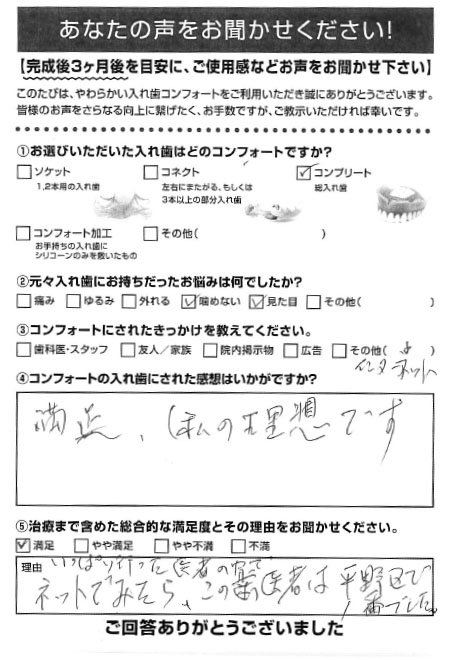 あなたの声をお聞かせください!
【完成後3ヶ月後を目安に、ご使用感などお声をお聞かせ下さい】
このたびは、やわらかい入れ歯コンフォートをご利用いただき誠にありがとうございます。
皆様のお声をさらなる向上に繋げたく、お手数ですが、ご教示いただければ幸いです。
①お選びいただいた入れ歯はどのコンフォートですか?
□ソケット □コネクト ☑コンプリート
1,2本用の入れ歯 左右にまたがる、もしくは 総入れ歯
3本以上の部分入れ歯
□コンフォート加工 □その他( )
お手持ちの入れ歯に
シリコーンのみを敷いたもの
②元々入れ歯にお持ちだったお悩みは何でしたか?
□痛み □ゆるみ □外れる ☑噛めない ☑見た目 □その他( )
③コンフォートにされたきっかけを教えてください。
□歯科医・スタッフ □友人/家族 □院内掲示物 □広告 □その他( )
インターネット
④コンフォートの入れ歯にされた感想はいかがですか?
満点、私の理想です
⑤治療まで含めた総合的な満足度とその理由をお聞かせください。
☑満足 □やや満足 □やや不満 □不満
理由 いっぱい行った医者の
ネットでみたら、この医者は平野区で
1番でした。
ご回答ありがとうございました